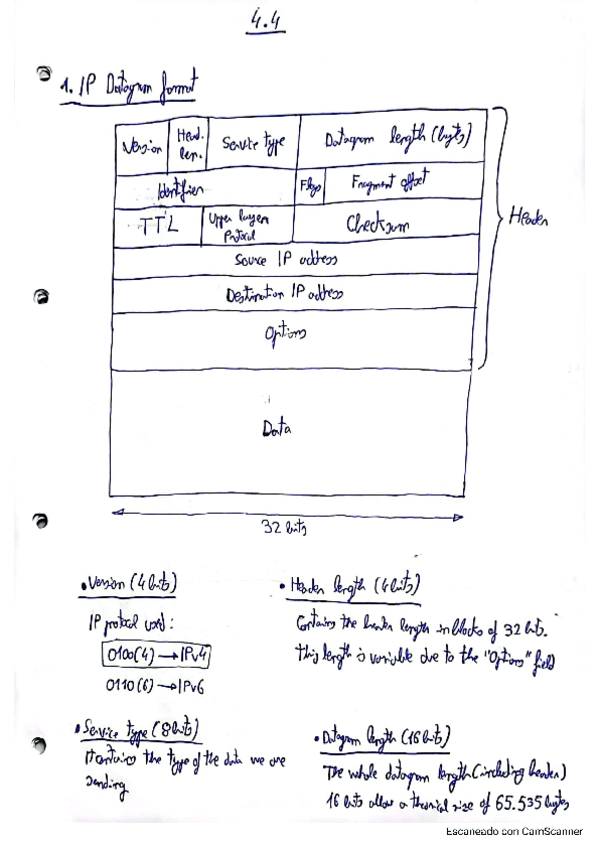 4.4
1. IP Datagram format
Version Head. len. Service type Datagram length (bytes)
Identifier Flags Fragment offset
TTL Upper layer Protocol Checksum
Header
Source IP address
Destination IP address
Options
Data
32 bits
• Version (4 bits)
IP protocol used:
0100(4) → IPv4
0110(6) → IPv6
• Header length (4 bits)
Contains the header length in blocks of 32 bits.
This length is variable due to the "Options" field
• Service type (8 bits)
It contains the type of the data we are
sending
• Datagram length (16 bits)
The whole datagram length (including header)
16 bits allow a theorical size of 65.535 bytes
Escaneado con CamScanner